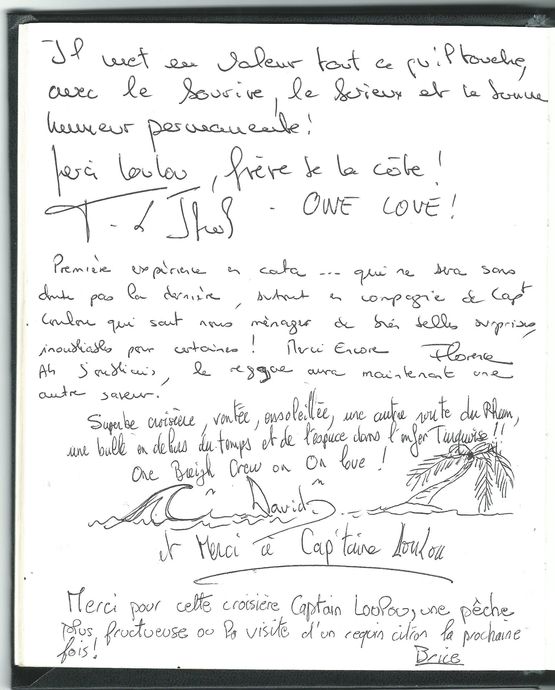 Il met en valeur tout ce qu'il touche,
avec le sourire, le sérieux et la bonne
humeur permanente!
Merci Loulou, frère de la côte!
- OWE LOVE!
Première expérience en cata ... qui ne sera sans
doute pas la dernière, surtout en compagnie de Capt
Loulou qui sait nous ménager de très belles surprises,
inoubliables pour certaines! Merci Encore Florence
Ah j'oubliais, le reggae aura maintenant une
autre saveur.
Superbe croisière, ventée, ensoleillée, une autre route du Rhum,
une bulle en dehors du temps et de l'espace dans l'enfer Turquoise!!
One Breizh Crew on On love!
David
et Merci à Cap'taine Loulou
Merci pour cette croisière Captain Loulou, une pêche
plus fructueuse ou la visite d'un requin citron la prochaine
fois!
Brice